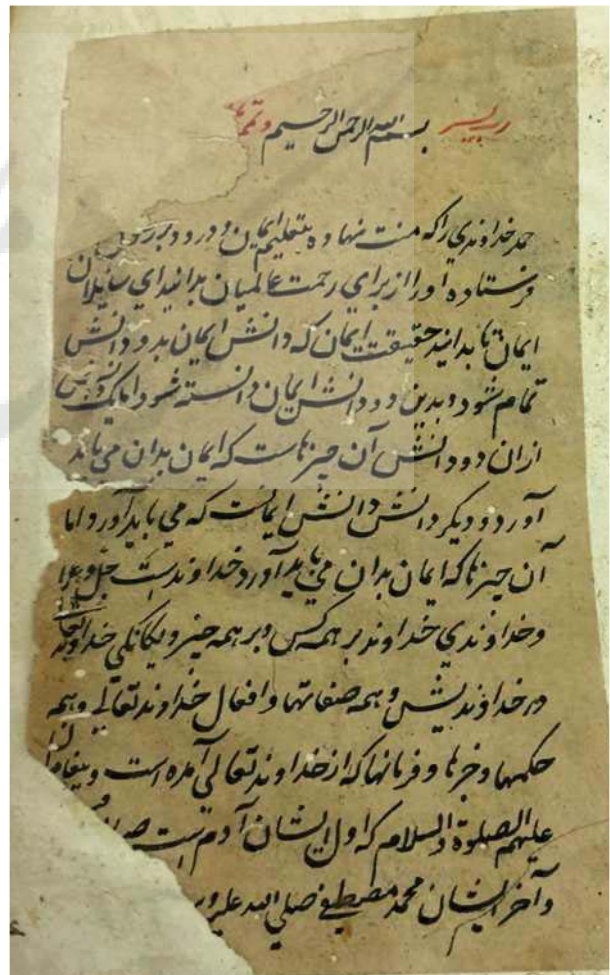 رب یسر بسم الله الرحمن الرحیم وتمم
حمد خداوندي را که منت نهاده بتعلیم ایمان و درود بر رسول
فرستاده او را از براي رحمت عالمیان بدانید اي سایلان
ایمان تا بدانید حقیقت ایمان که دانش ایمان بدو دانش
تمام شود و بدین دو دانش ایمان دانسته شود اما یک دانش
ازان دو دانش آن چیزهاست که ایمان بدان مي باید
آورد و دیکر دانش دانش ایمانست که مي باید آورد اما
آن چیزها که ایمان بدان مي باید آورد خداوندست جل و علا
وخداوندي خداوند بر همه کس وبر همه چیز ویکانکي خداوند
در خداوندیش وهمه صفاتها وافعال خداوند تعالی وهمه
حکمها وخبرها وفرمانها که از خداوند تعالي آمده است وپیغامبران
علیهم الصلوة والسلام که اول ایشان آدم است
وآخر ایشان محمد مصطفے صلي الله علیه